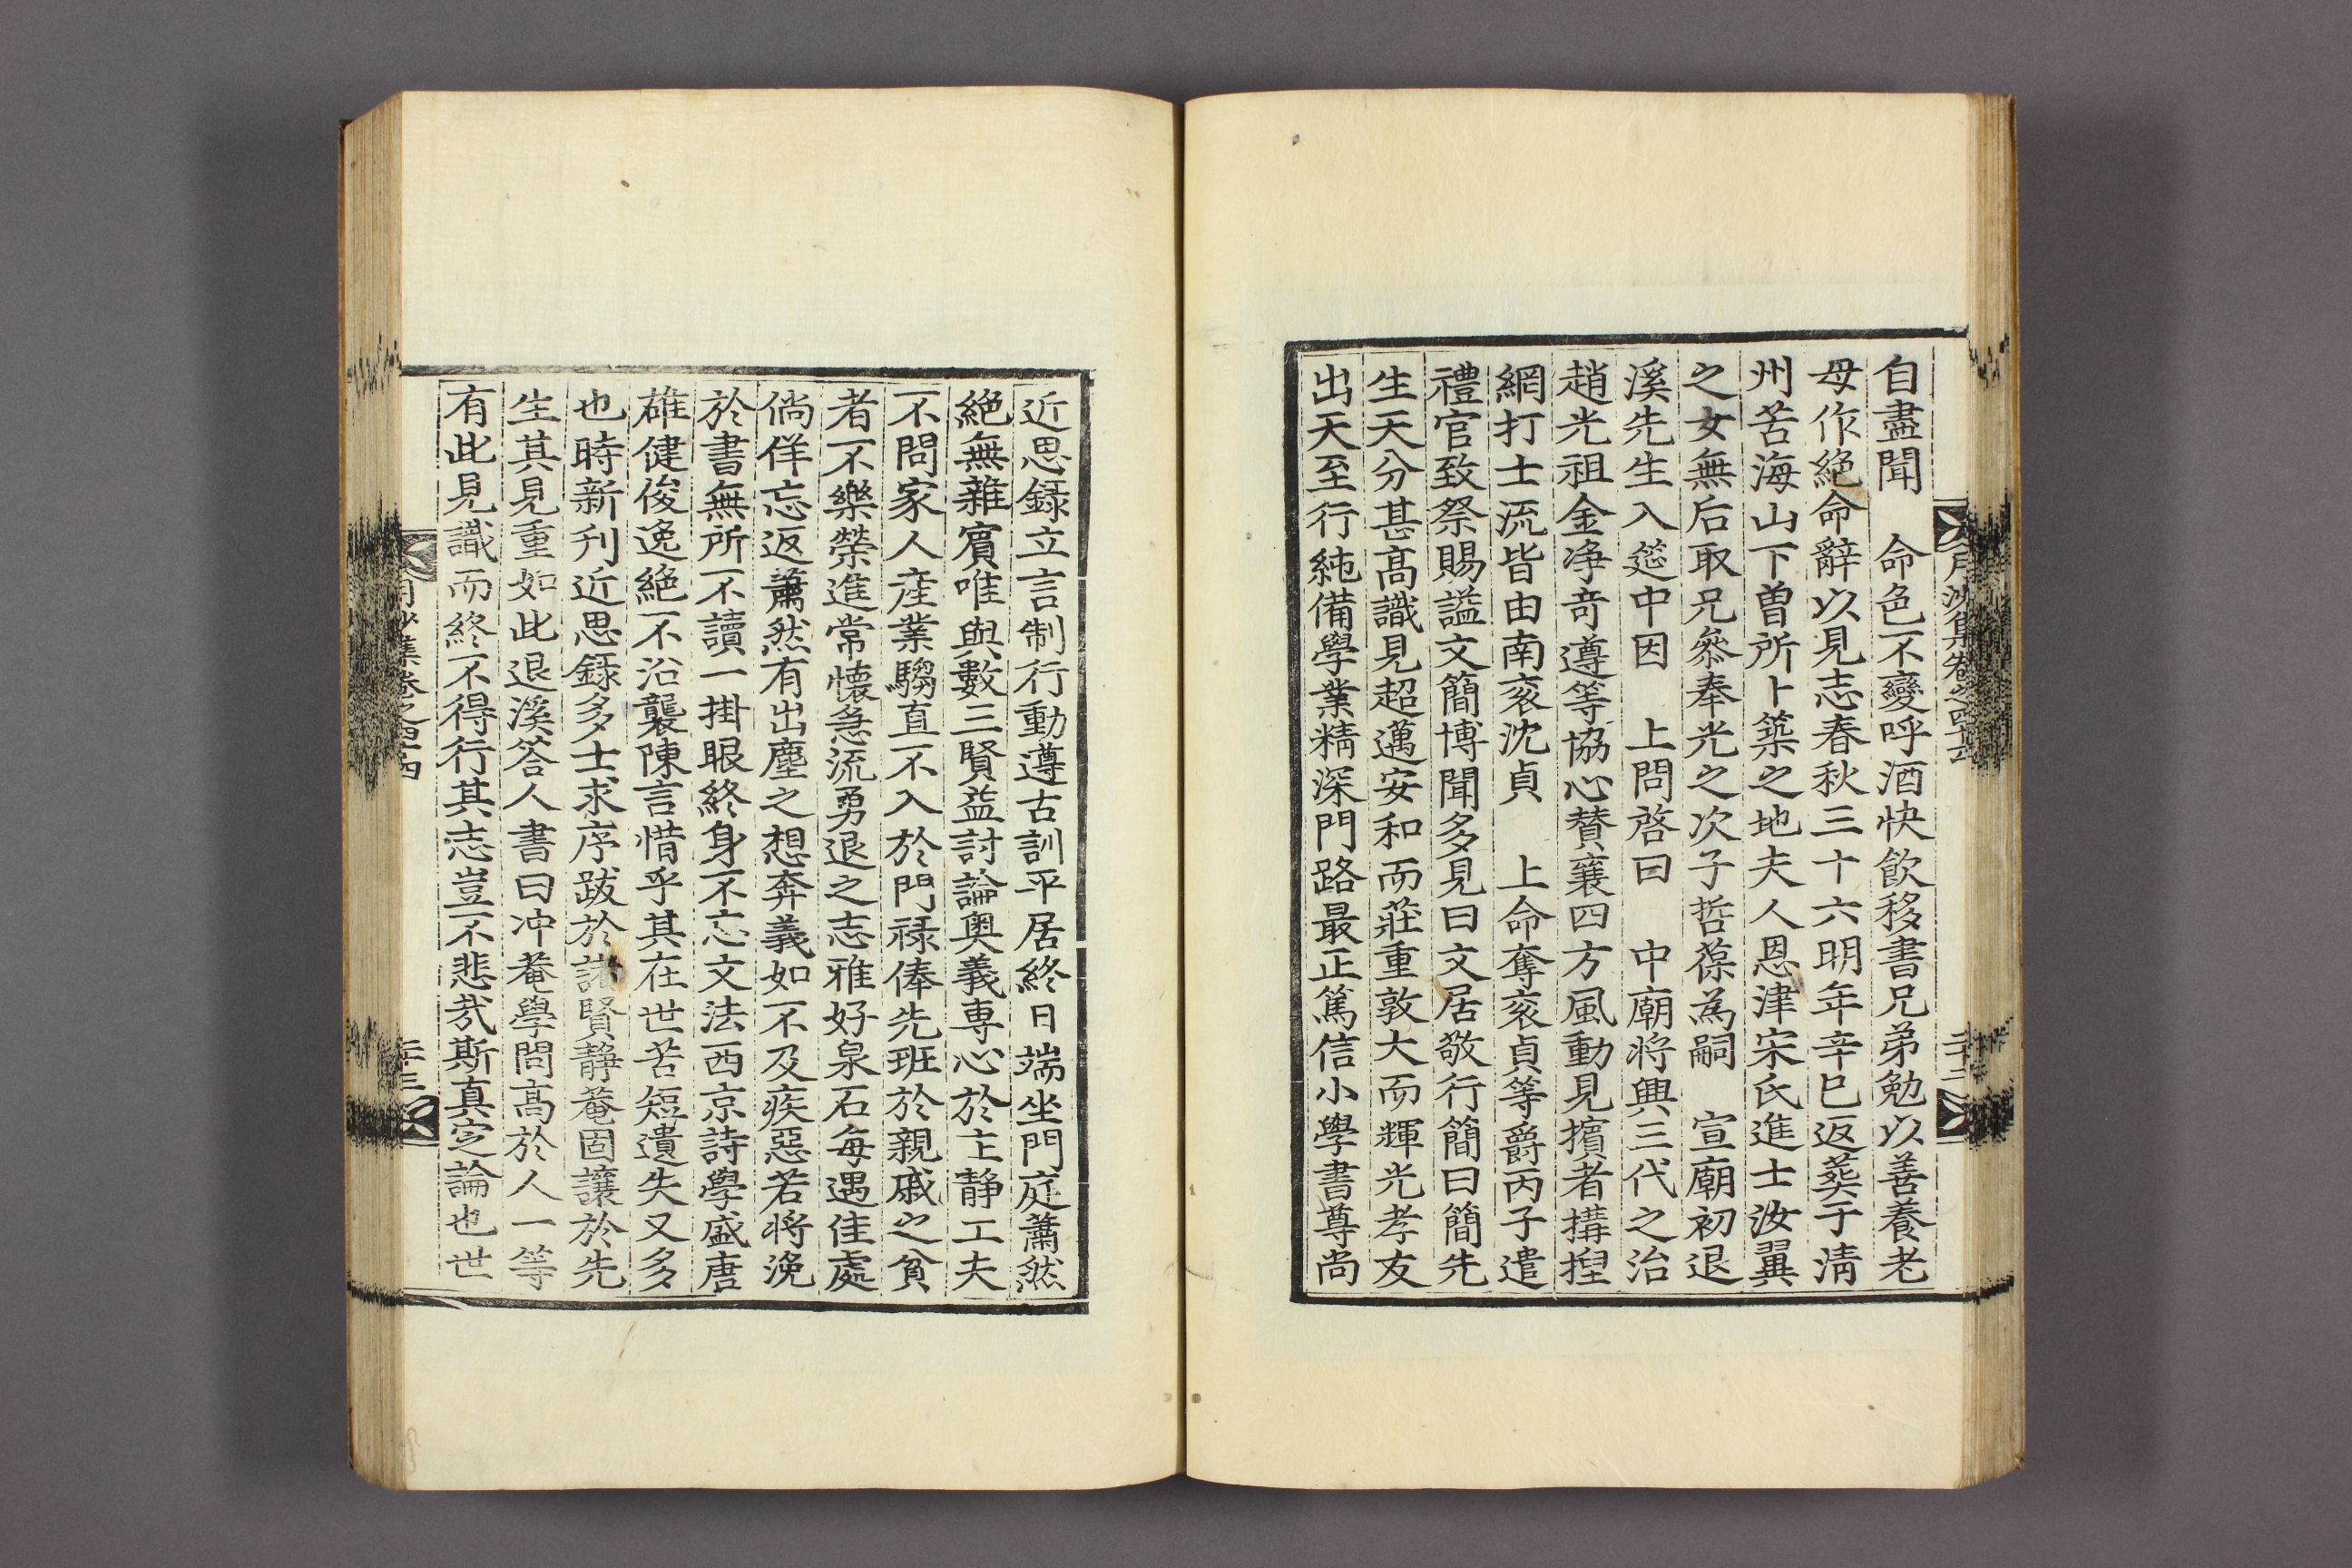 自盡聞　命色不變呼酒快飲移書兄弟勉以善養老
母作絕命辭以見志春秋三十六明年辛巳返葬于淸
州苦海山下曾所卜築之地夫人恩津宋氏進士汝翼
之女無后取兄叅奉光之次子哲葆爲嗣　宣廟初退
溪先生入筵中因　上問啓曰　中廟將興三代之治
趙光祖金凈奇遵等協心賛襄四方風動見擯者搆揑
網打士流皆由南袞沈貞　上命奪袞貞等爵丙子遣
禮官致祭賜謚文簡博聞多見曰文居敬行簡曰簡先
生天分甚高識見超邁安和而莊重敦大而輝光孝友
出天至行純備學業精深門路最正篤信小學書尊尚
近思錄立言制行動遵古訓平居終日端坐門庭蕭然
絕無雜賓唯與數三賢益討論奧義專心於主靜工夫
不問家人產業騶直不入於門祿俸先班於親戚之貧
者不樂榮進常懷急流勇退之志雅好泉石每遇佳處
倘佯忘返蕭然有出塵之想奔義如不及疾惡若將浼
於書無所不讀一掛眼終身不忘文法西京詩學盛唐
雄健俊逸絕不沿襲陳言惜乎其在世苦短遺失又多
也時新刋近思錄多士求序跋於諸賢靜菴固讓於先
生其見重如此退溪答人書曰冲菴學問高於人一等
有此見識而終不得行其志豈不悲㢤斯真定論也世